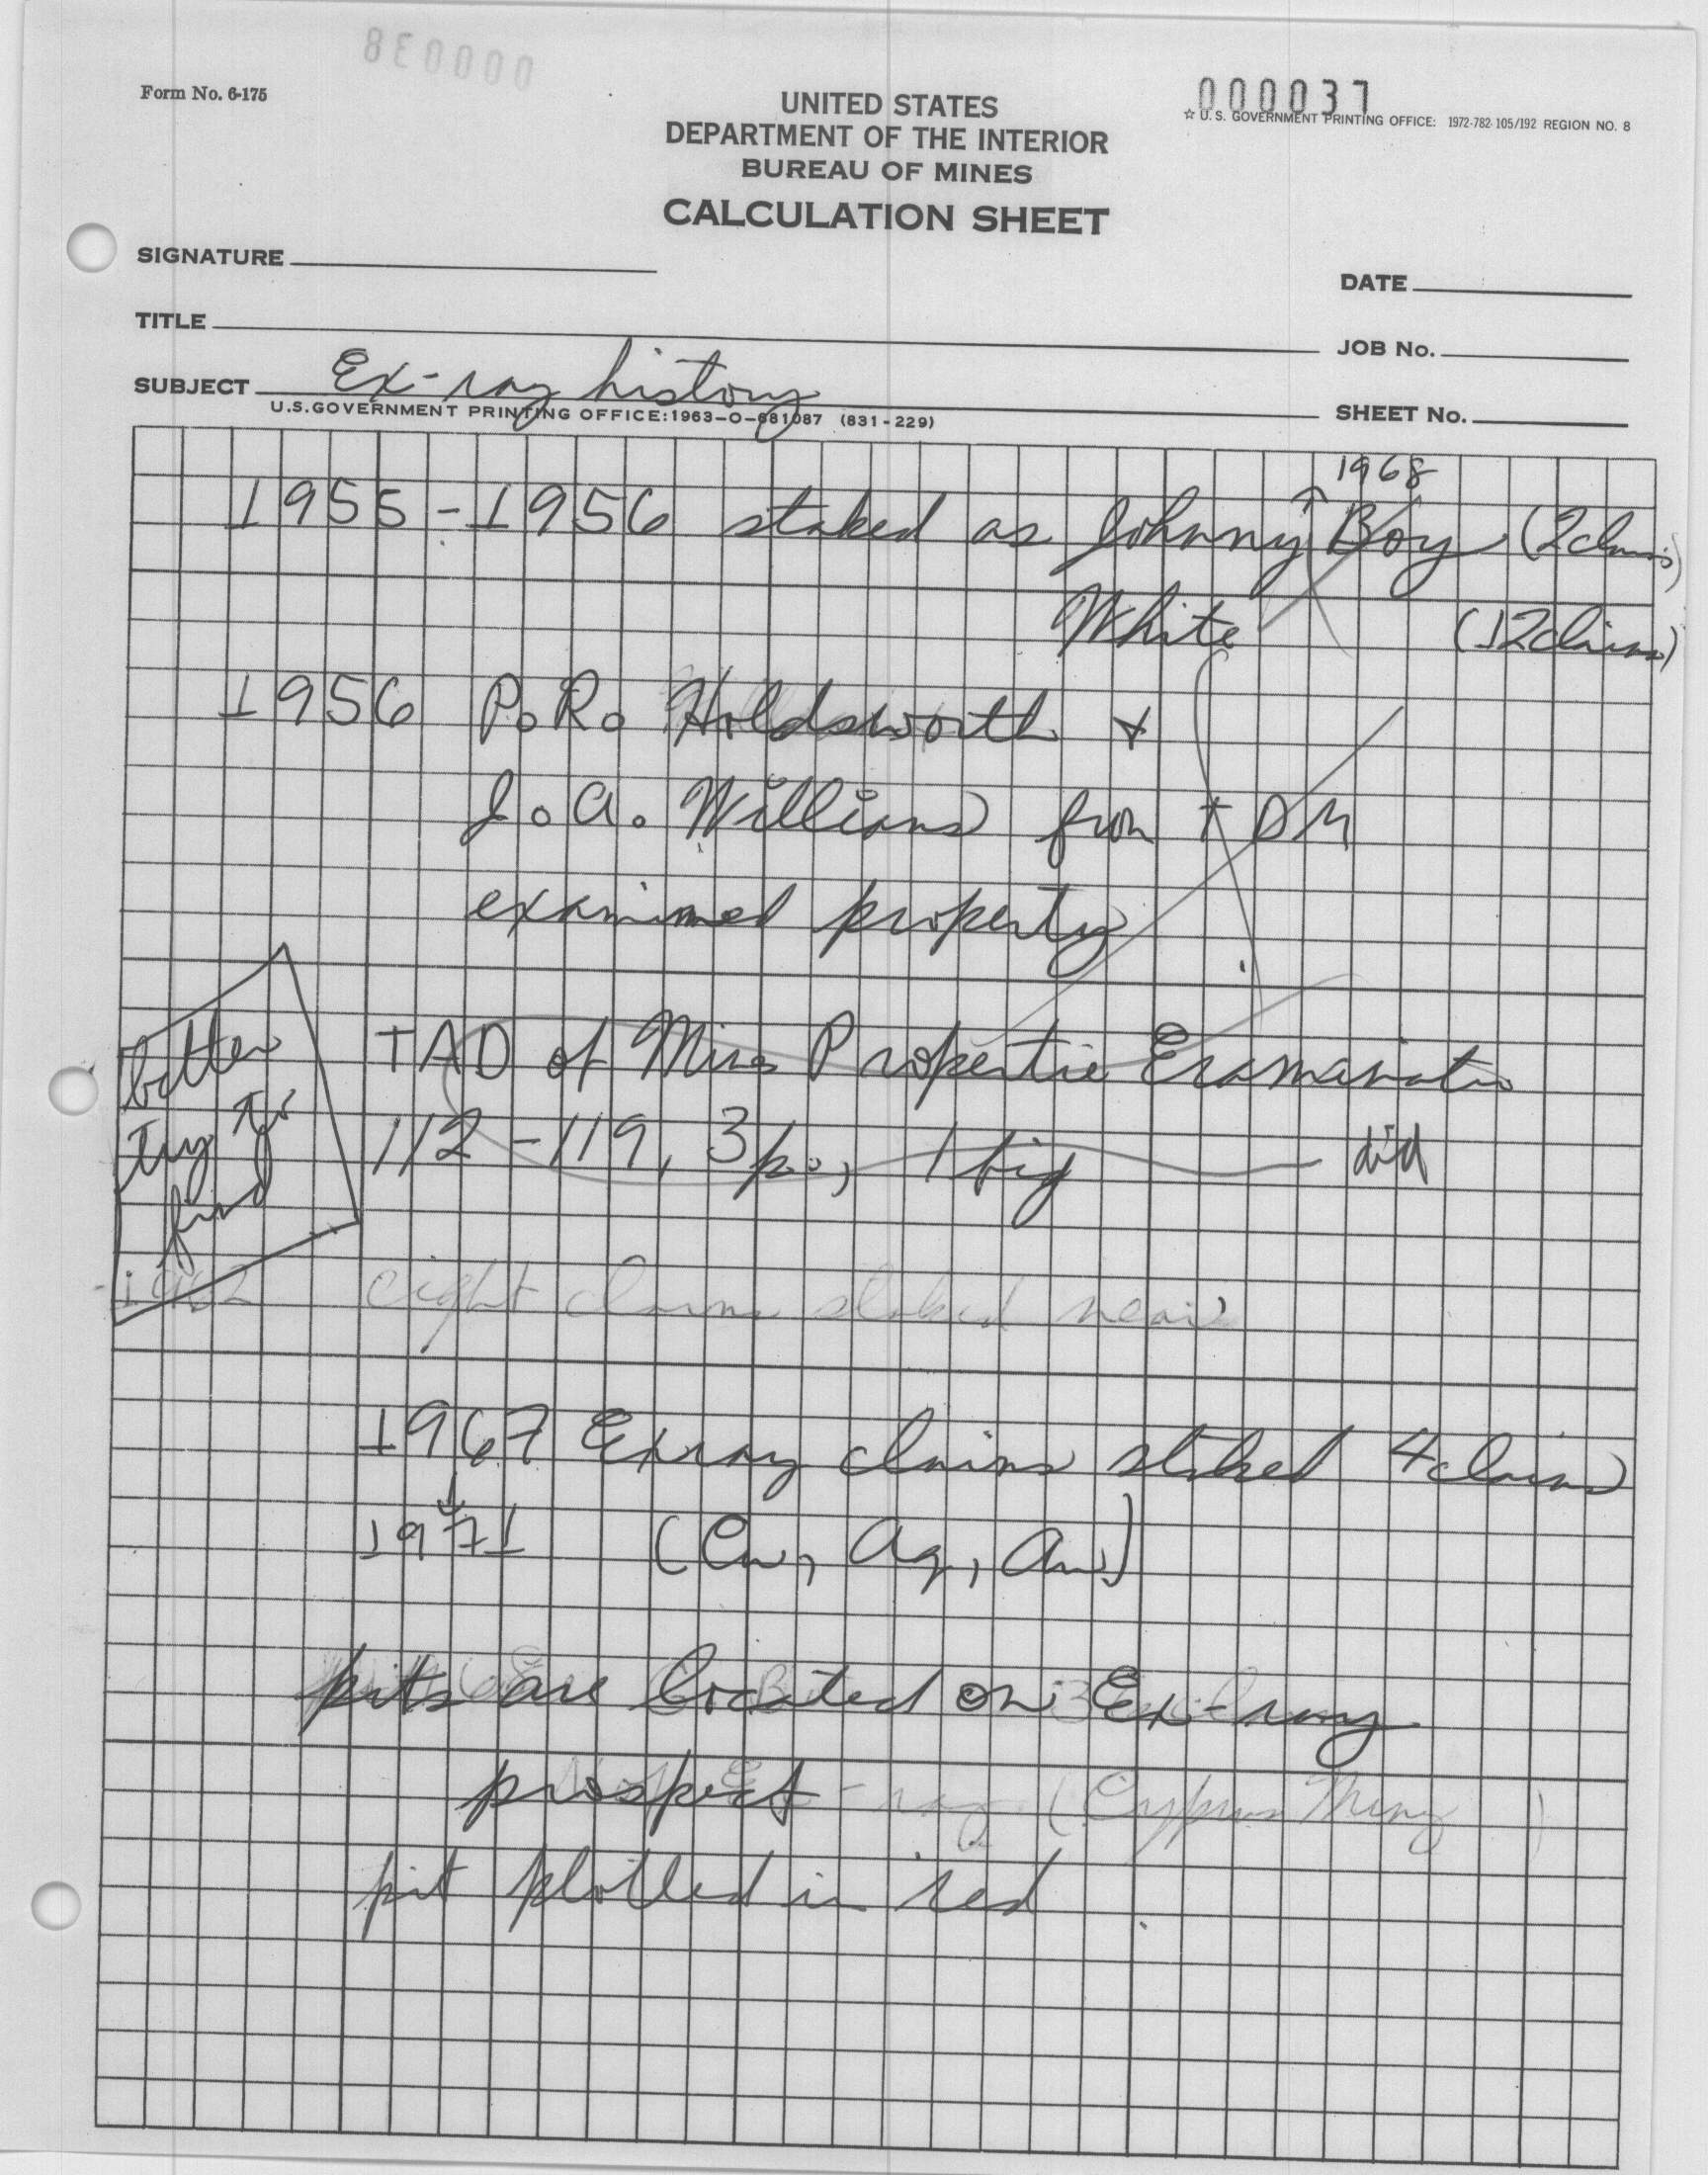 000038
Form No. 6-175
000037
☆ U. S. GOVERNMENT PRINTING OFFICE: 1972-782-105/192 REGION NO. 8
UNITED STATES
DEPARTMENT OF THE INTERIOR
BUREAU OF MINES
CALCULATION SHEET
SIGNATURE
DATE
TITLE
JOB No.
SUBJECT Ex-ray history
U.S.GOVERNMENT PRINTING OFFICE:1963-O-681087 (831-229)
SHEET No.
1968
1955-1956 staked as Johnny Boy (2 claims)
White (12 claims)
1956 P. R. Holdsworth &
J. A. Williams from TDM
examined property
TAD of Mines Propertie Examinatio
112-119, 3 p., 1 fig did
better
try to
find
1962 eight claims staked near
1967 Exray claims staked 4 claim
1971 (Cu, Ag, Au)
pits are located on Ex-ray
prospect - ray (Cyprus Ming )
pit plotted in red